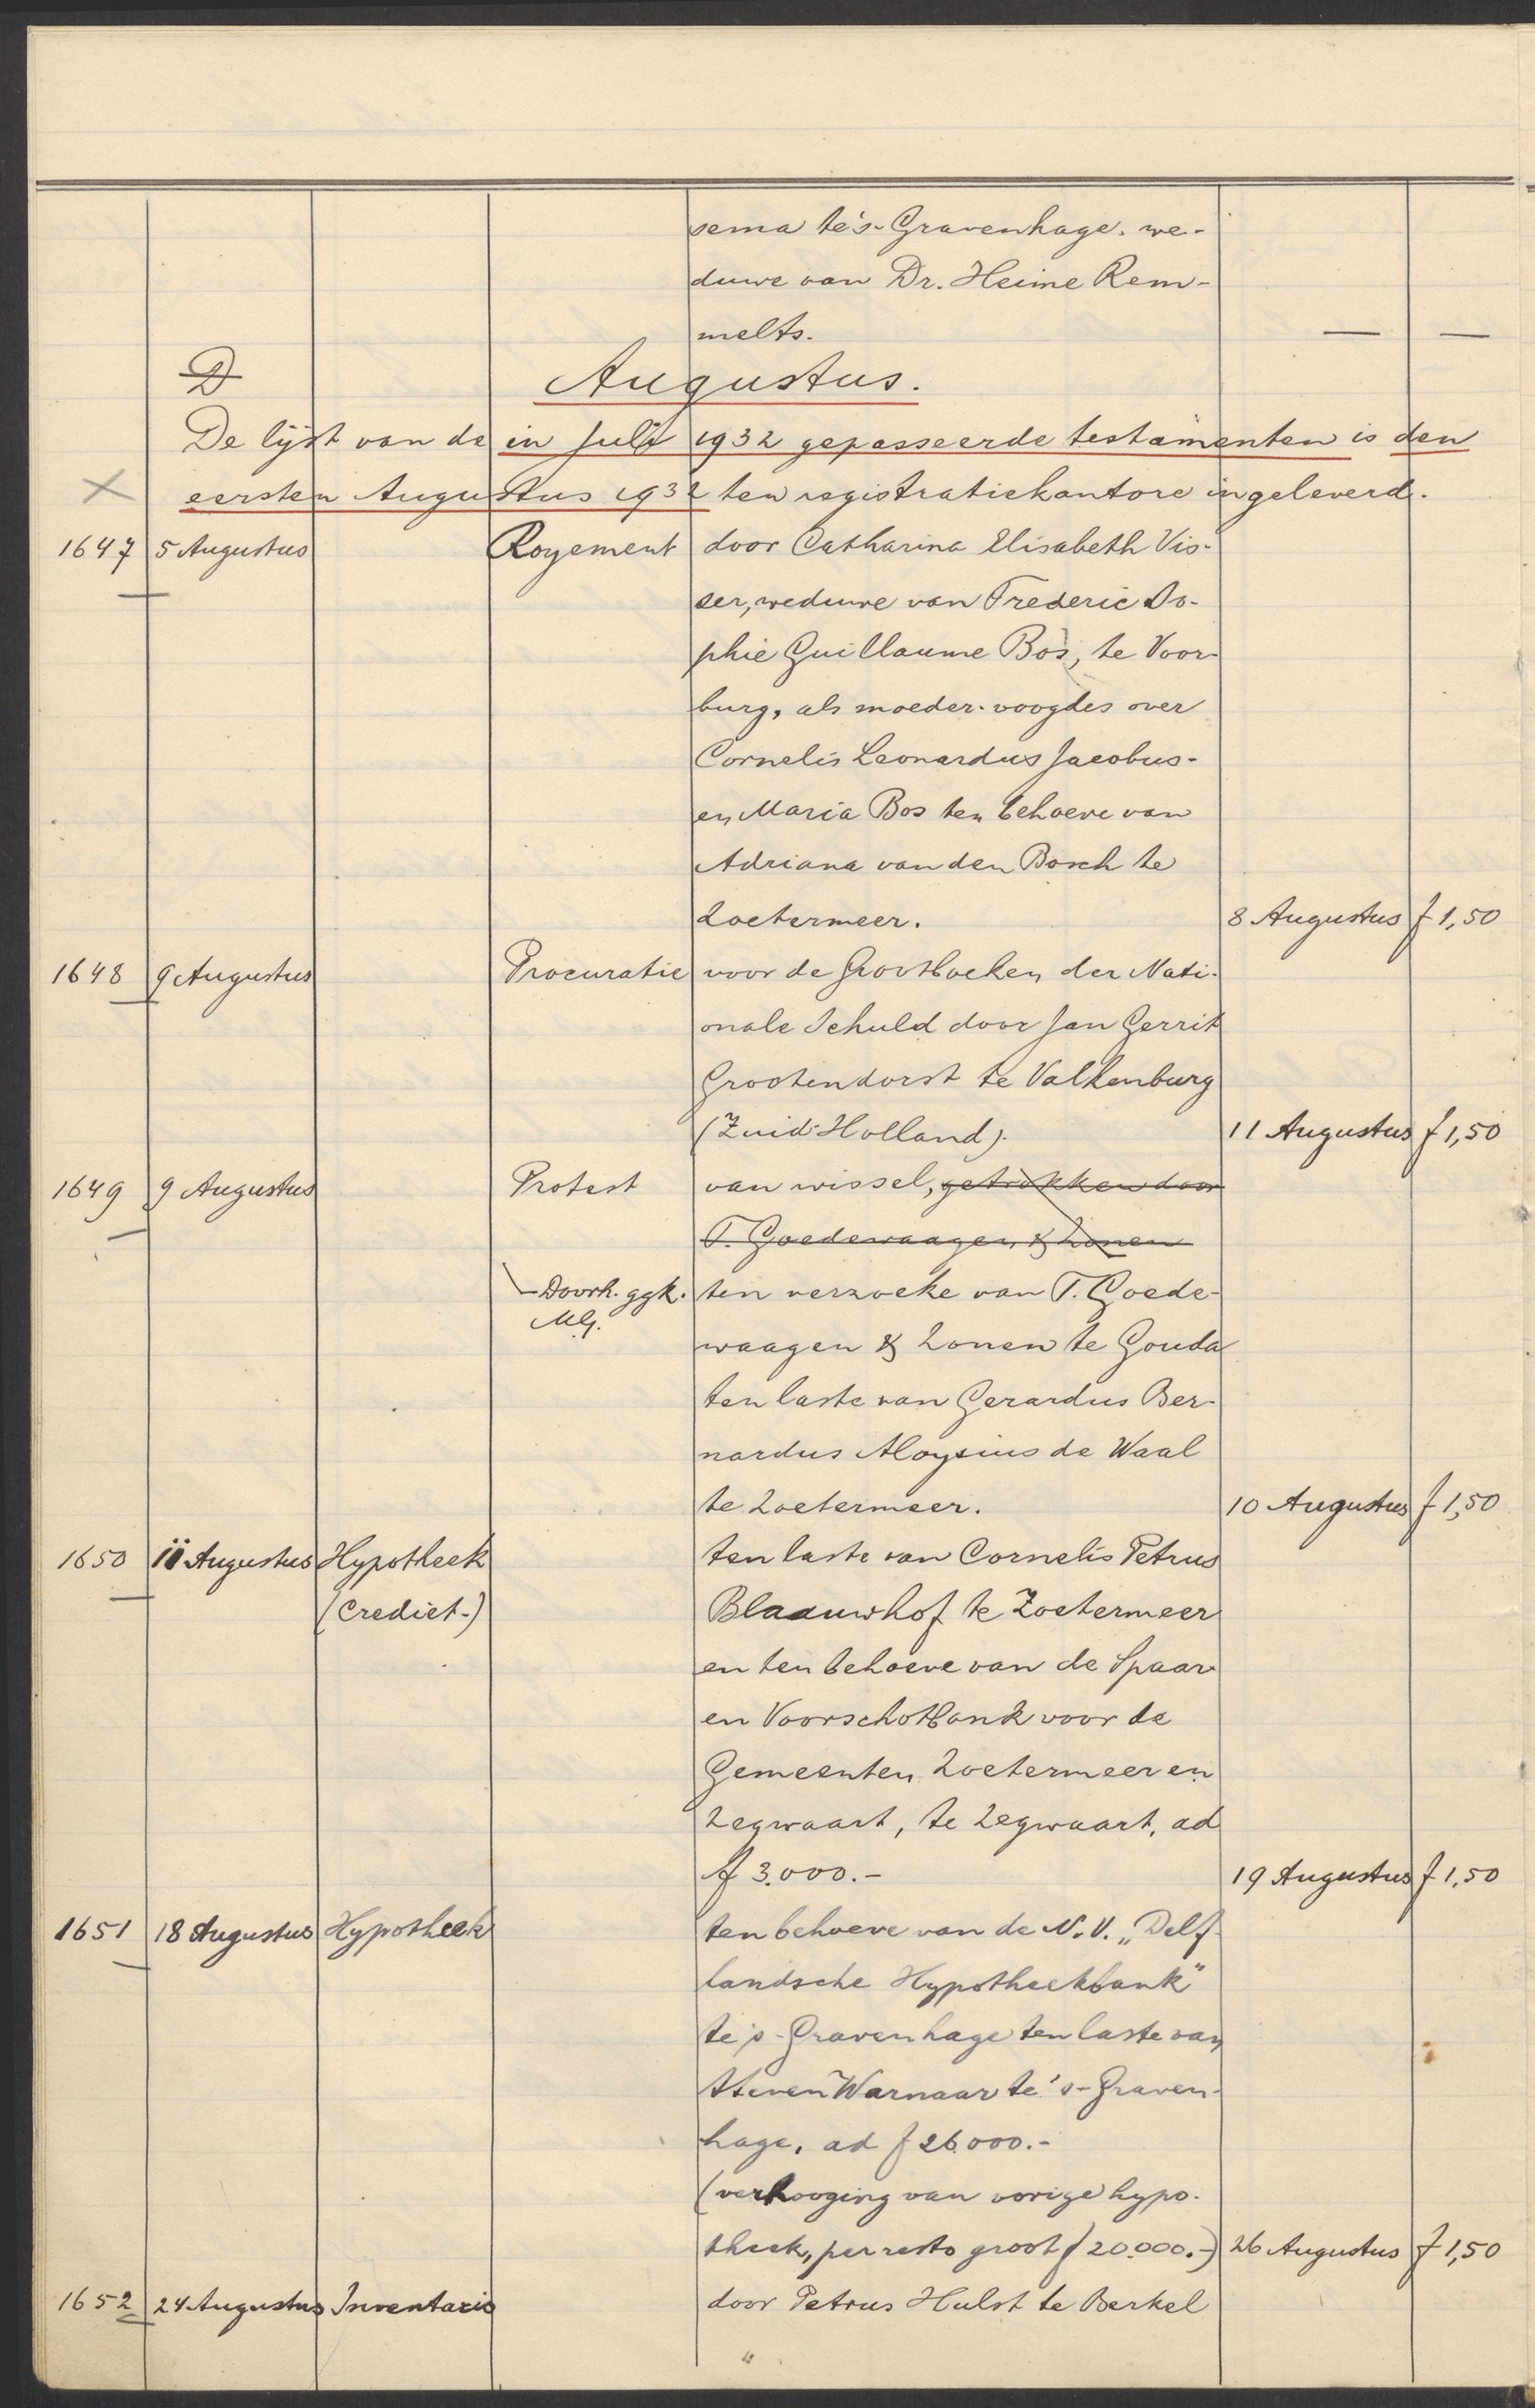 sema te 's-Gravenhage, we-
duwe van Dr. Heime Rem-
melts. — —
D
Augustus.
De lijst van de in Juli 1932 gepasseerde testamenten is den
eersten Augustus 1932 ten registratiekantore ingeleverd.
1647 5 Augustus Royement door Catharina Elisabeth Vis-
ser, weduwe van Frederic So-
phie Guillaume Bos, te Voor-
burg, als moeder-voogdes over
Cornelis Leonardus Jacobus-
en Maria Bos ten behoeve van
Adriana van den Bosch te
Zoetermeer. 8 Augustus f 1,50
1648 9 Augustus Procuratie voor de Grootboeken der Nati-
onale Schuld door Jan Gerrit
Grootendorst te Valkenburg
(Zuid-Holland). 11 Augustus f 1,50
1649 9 Augustus Protest van wissel, getrokken door
T. Goedewaagen & Zonen
Doorh. ggk. ten verzoeke van T. Goede-
MG. waagen & Zonen te Gouda
ten laste van Gerardus Ber-
nardus Aloysius de Waal
te Zoetermeer. 10 Augustus f 1,50
1650 11 Augustus Hypotheek ten laste van Cornelis Petrus
(Crediet-) Blaauwhof te Zoetermeer
en ten behoeve van de Spaar-
en Voorschotbank voor de
Gemeenten Zoetermeer en
Zegwaart, te Zegwaart, ad
f 3.000.- 19 Augustus f 1,50
1651 18 Augustus Hypotheek ten behoeve van de N.V. „Delf-
landsche Hypotheekbank"
te 's-Gravenhage ten laste van
Steven Warnaar te 's-Graven-
hage, ad f 26.000.-
(verhooging van vorige hypo-
theek, per resto groot f 20.000.-) 26 Augustus f 1,50
1652 24 Augustus Inventaris door Petrus Hulst te Berkel